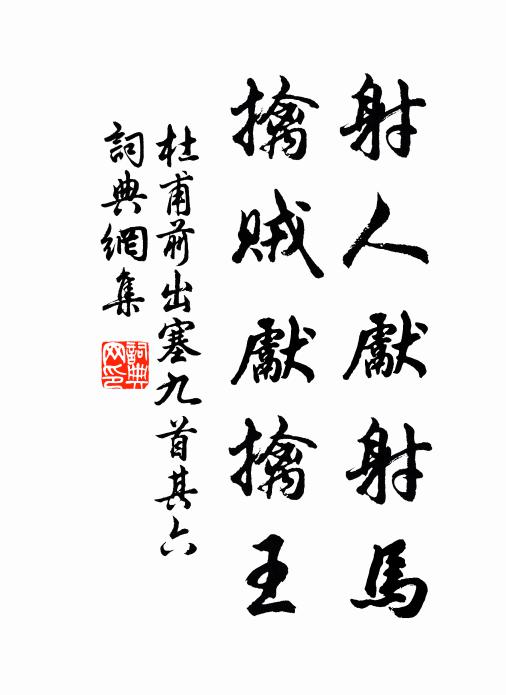 射人獻射馬
擒賊獻擒王
杜甫前出塞九首其六
詞典網集
詞典
网印